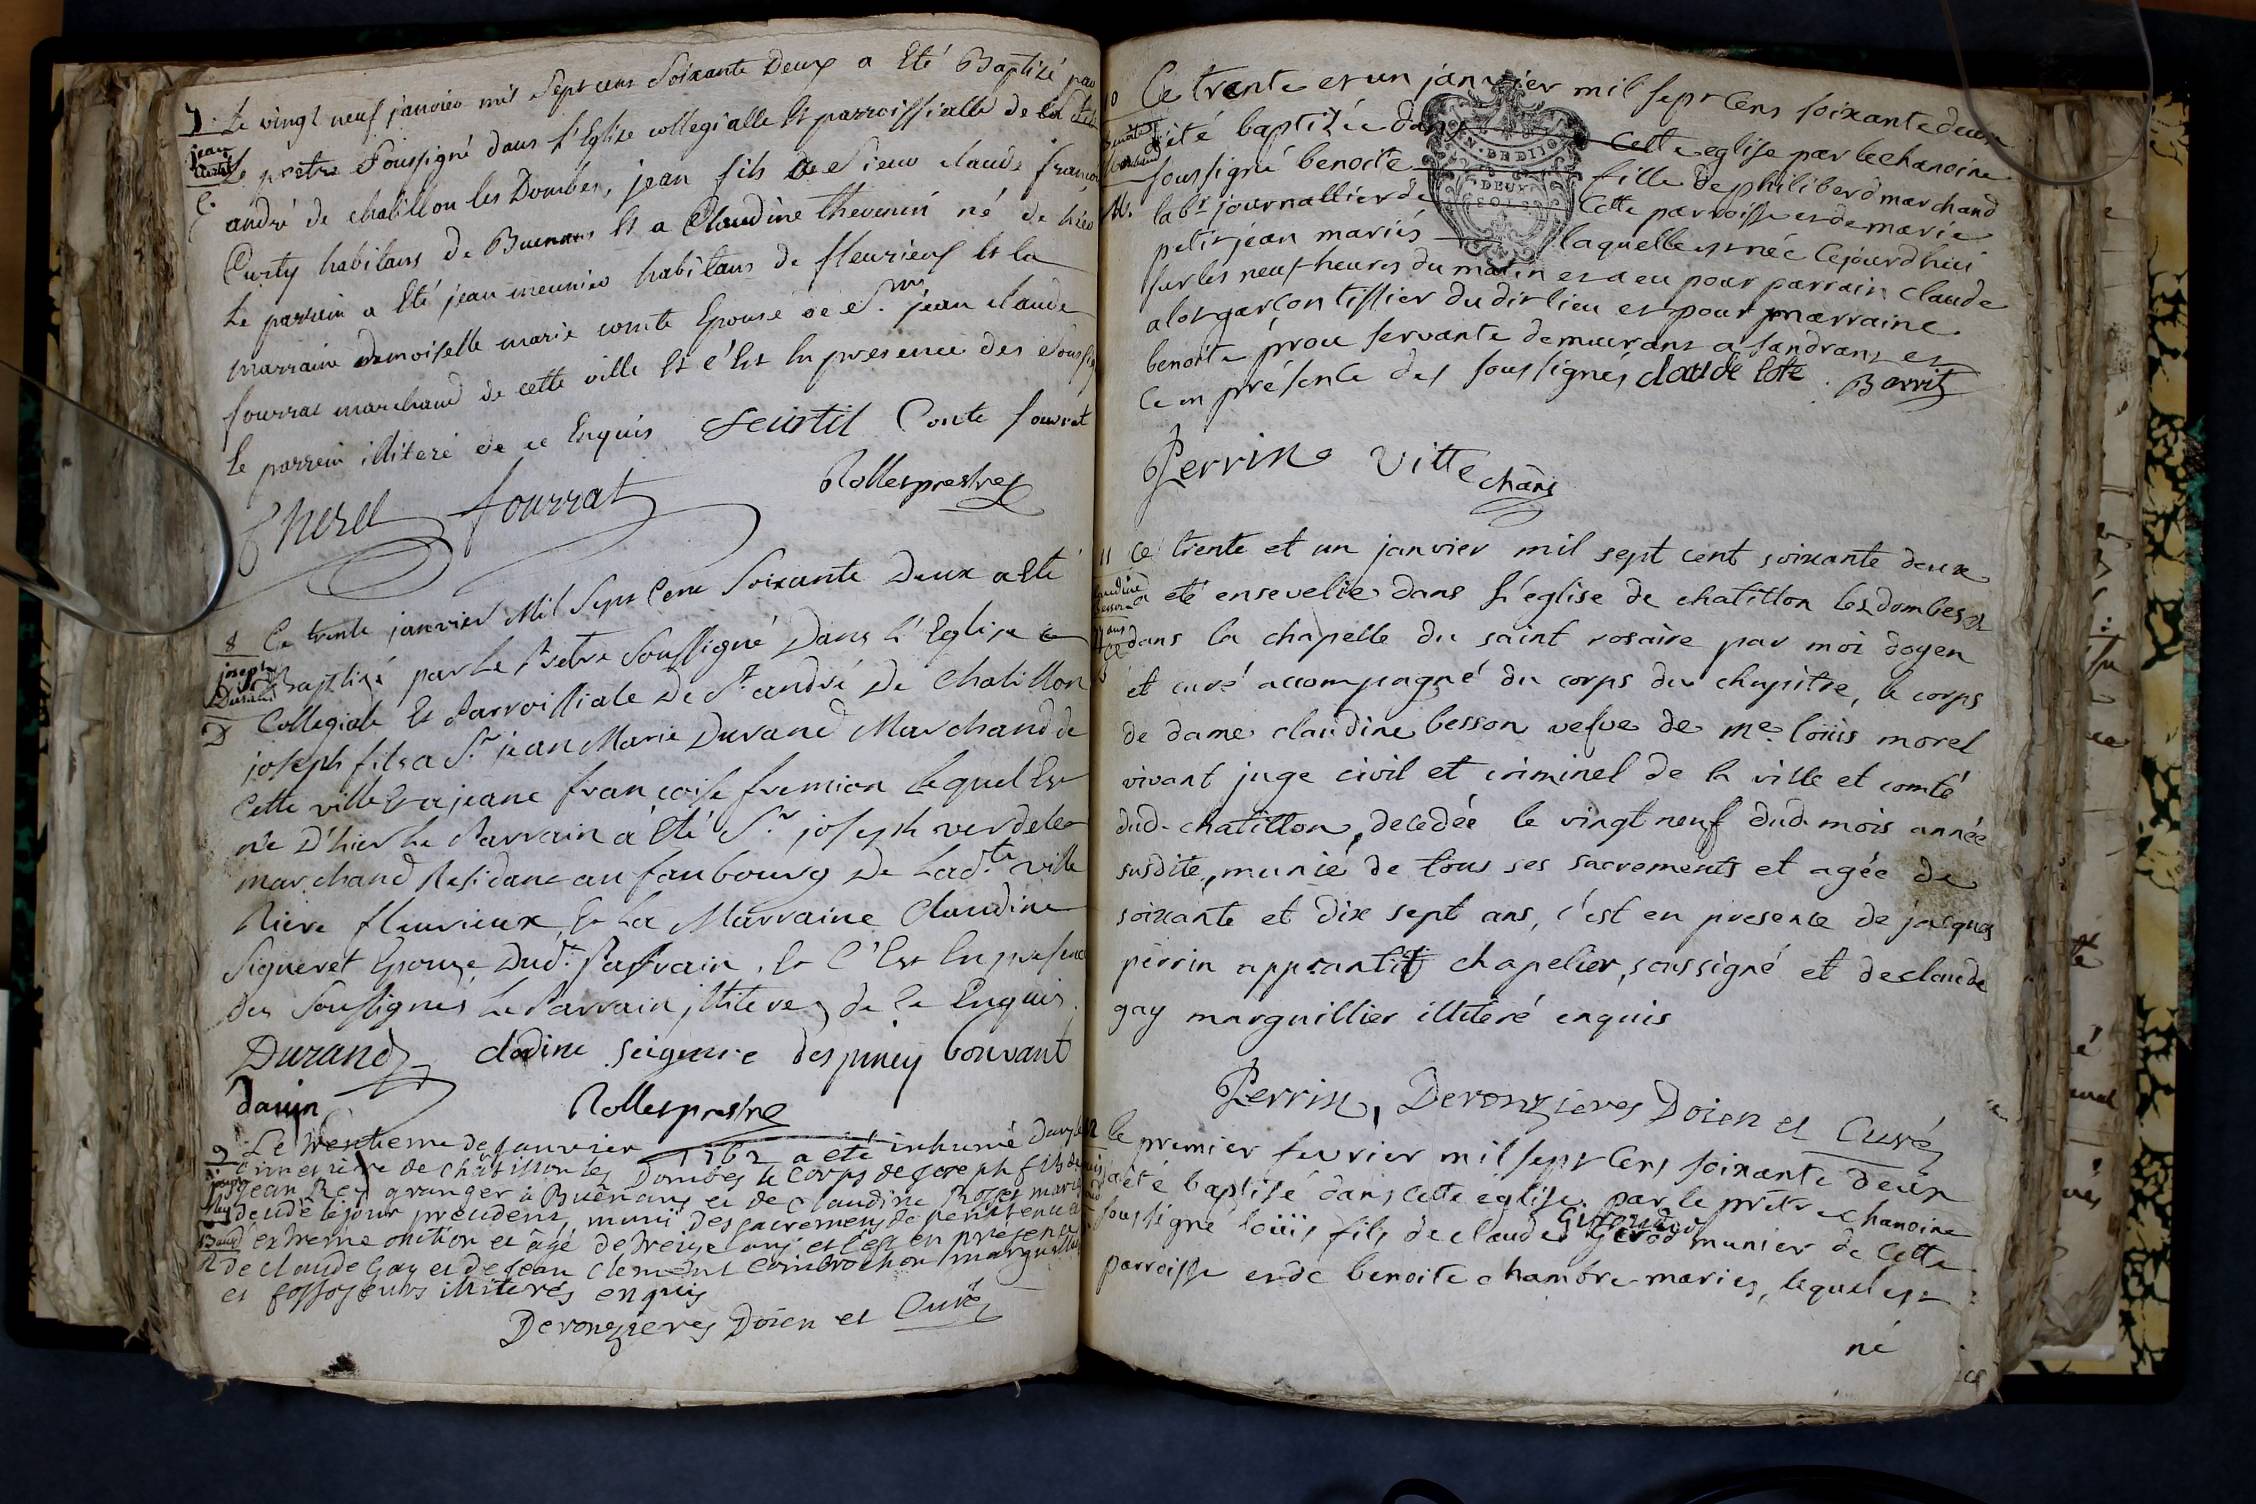 7. Le vingt neuf janvier mil sept cens soixante Deux a Eté Baptizé par
jean
Curty
Le pretre soussigné dans l'Eglise collegialle Et parroissialle de St
C.
andré de chatillon les Dombes, jean fils de Sieur claude françois
Curty habitans de Buenans Et a Claudine thevenin né de hier
Le parrein a Eté jean meunier habitans de fleurieux Et la
marraine demoiselle marie comte Epouse de Sr. jean claude
fourrat marchand de cette ville Et c'Est En presence des soussignés
Le parrein illiteré de ce Enquis Comte fourrat
fourrat
Rollet prestre
8 Ce trente janvier Mil Sept Cent Soixante Deux a Eté
joseph
Durand
Baptizé par Le Pretre Soussigné Dans L'Eglise
D
Collegiale Et Parroissiale De St andré De Chatillon
joseph fils a Sr jean Marie Durand Marchand de
Cette ville Et a jeane françoise fremion Lequel Est
né D'hier Le Parrain a Eté Sr joseph verdelet
marchand Residant au faubourg De Ladte ville
Riere fleurieux Et La Marraine Claudine
Signeret Epouze Dudt Parrain, Et C'Est En presence
des Soussignés Le Parrain illitere de Ce Enquis.
Durand clodine seignere despiney bouvant
danin
Rollet prestre
9 Le trentieme de Janvier 1762 a eté inhumé dans le
cimetière de châtillon les Dombes le corps de joseph fils de
joseph
Rey
jean Rey granger à Buenans et de Claudine Roset mariés
decedé le jour précedent, muni des sacremens de penitence et
extreme onction et âgé de treize ans, et c'est en présence
de claude Gay et de jean clement combrochon marguillier
et fossoyeurs illiterés enquis
Deronzieres Doien et Curé
10 Ce trente et un janvier mil sept cens soixante deux
a été baptizée dans cette eglise par le chanoine
soussigné benoite fille de philiberd marchand
M.
labr journallier de cette parroisse et de marie
petitjean mariés laquelle est née cejourdhui
sur les neuf heures du matin et a eu pour parrain claude
alot garçon tissier dudit lieu et pour marraine
benoite prou servante demeurant a sandrans et
ce en présence des soussignés claude lote. Borrit
Perrin Vitte
chans
11 Ce trente et un janvier mil sept cent soixante deux
claudine
besson
a eté ensevelie dans l'eglise de chatillon les dombes et
77 ans
dans la chapelle du saint rosaire par moi doyen
et curé accompagné du corps du chapitre, le corps
de dame claudine besson vefve de me. loüis morel
vivant juge civil et criminel de la ville et comté
dud. chatillon, decedée le vingt neuf dud. mois année
susdite, munie de tous ses sacrements et agée de
soixante et dix sept ans, c'est en presence de jacques
perrin apprantif chapelier, soussigné et de claude
gay marguillier illiteré enquis
Perrin, Deronzieres Doien et Curé
12 le premier fevrier mil sept cens soixante deux
a été baptisé dans cette église par le prêtre chanoine
soussigné loüis, fils de claude munier de cette
parroisse et de benoite chambre mariés, lequel est
né